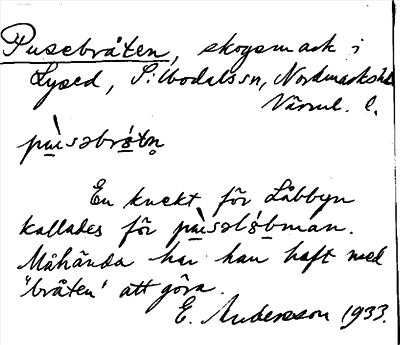 Pusebråten, skogsmark i
Lysed, S. Bodalssn, Nordmarkshd
Värml. l.
pɯ̀səbrśtn̥
En knekt för Låbbyn
kallades för pɯ̀səlśbman.
Måhända har han haft med
"bråten" att göra.
E. Andersson 1933.